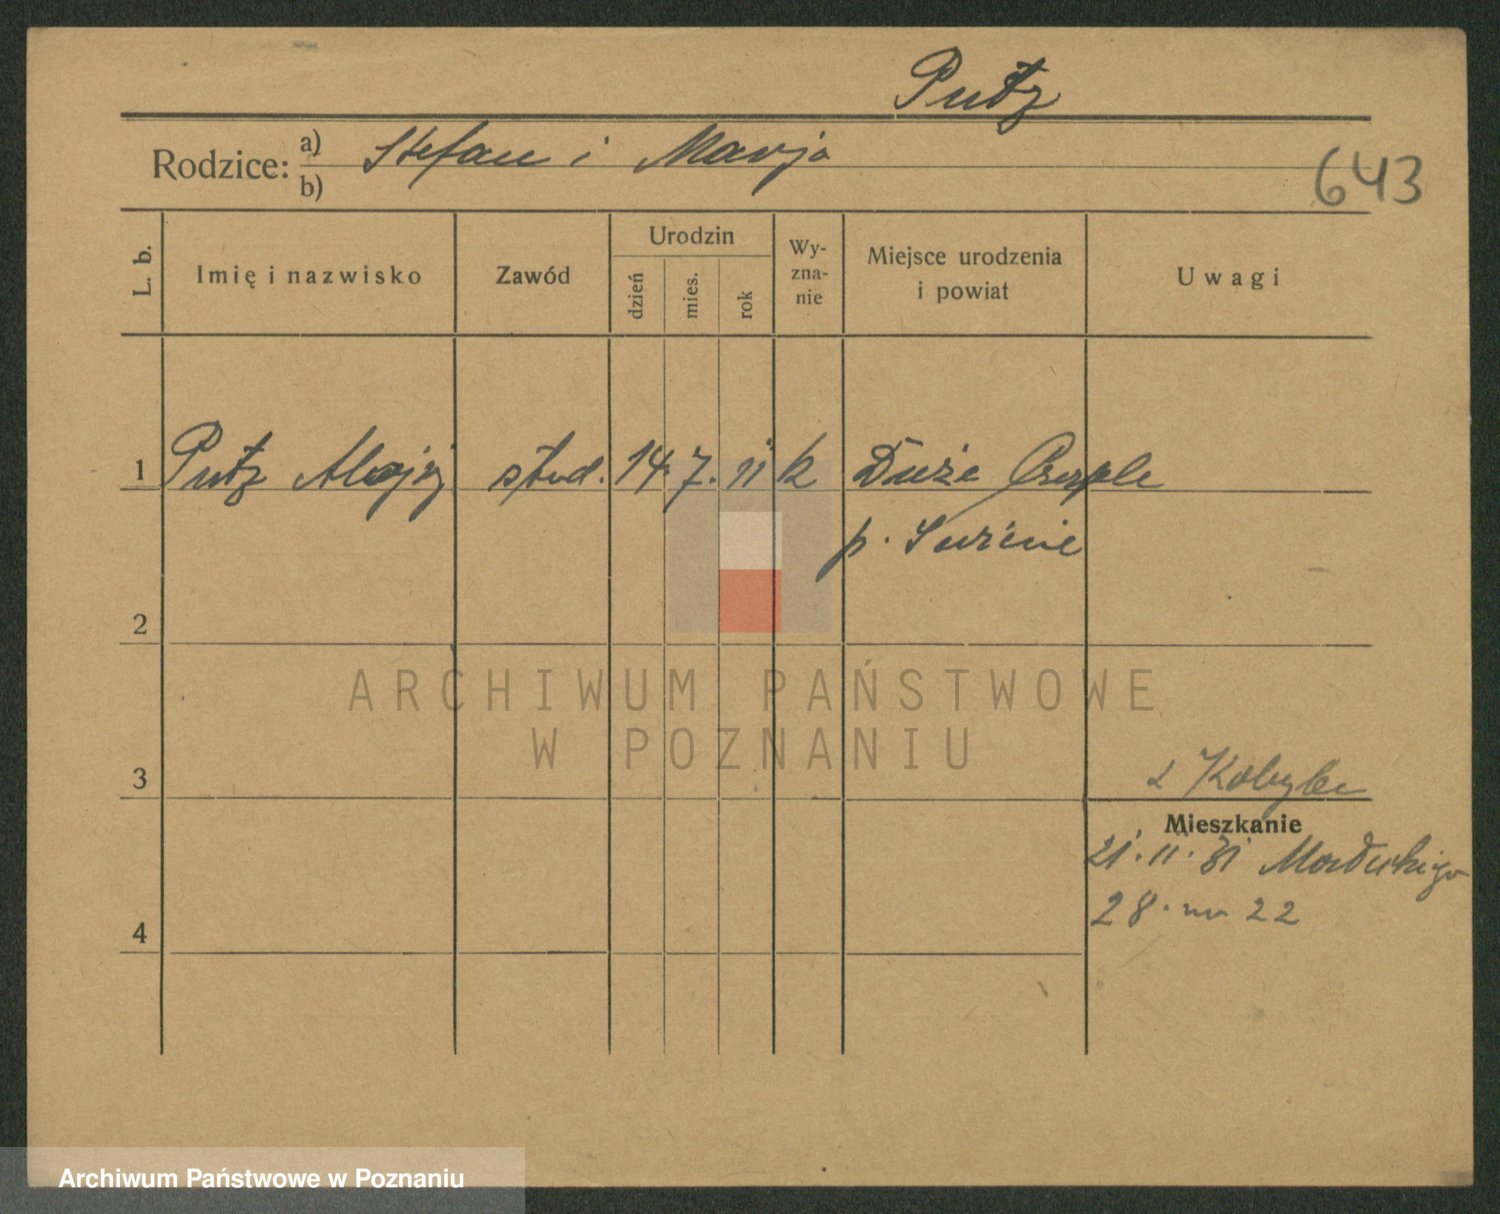 Putz
Rodzice: a) Stefan i Marja
b)
643
L. b.
Imię i nazwisko
Zawód
Urodzin
dzień
mies.
rok
Wy-
zna-
nie
Miejsce urodzenia
i powiat
Uwagi
1 Putz Alojzy stud. 14. 7. 11 k Duże Czyple
p. Świecie
2
ARCHIWUM PAŃSTWOWE
W POZNANIU
3
z Kobyle
Mieszkanie
21. 11. 31
28. m 22
4
Archiwum Państwowe w Poznaniu